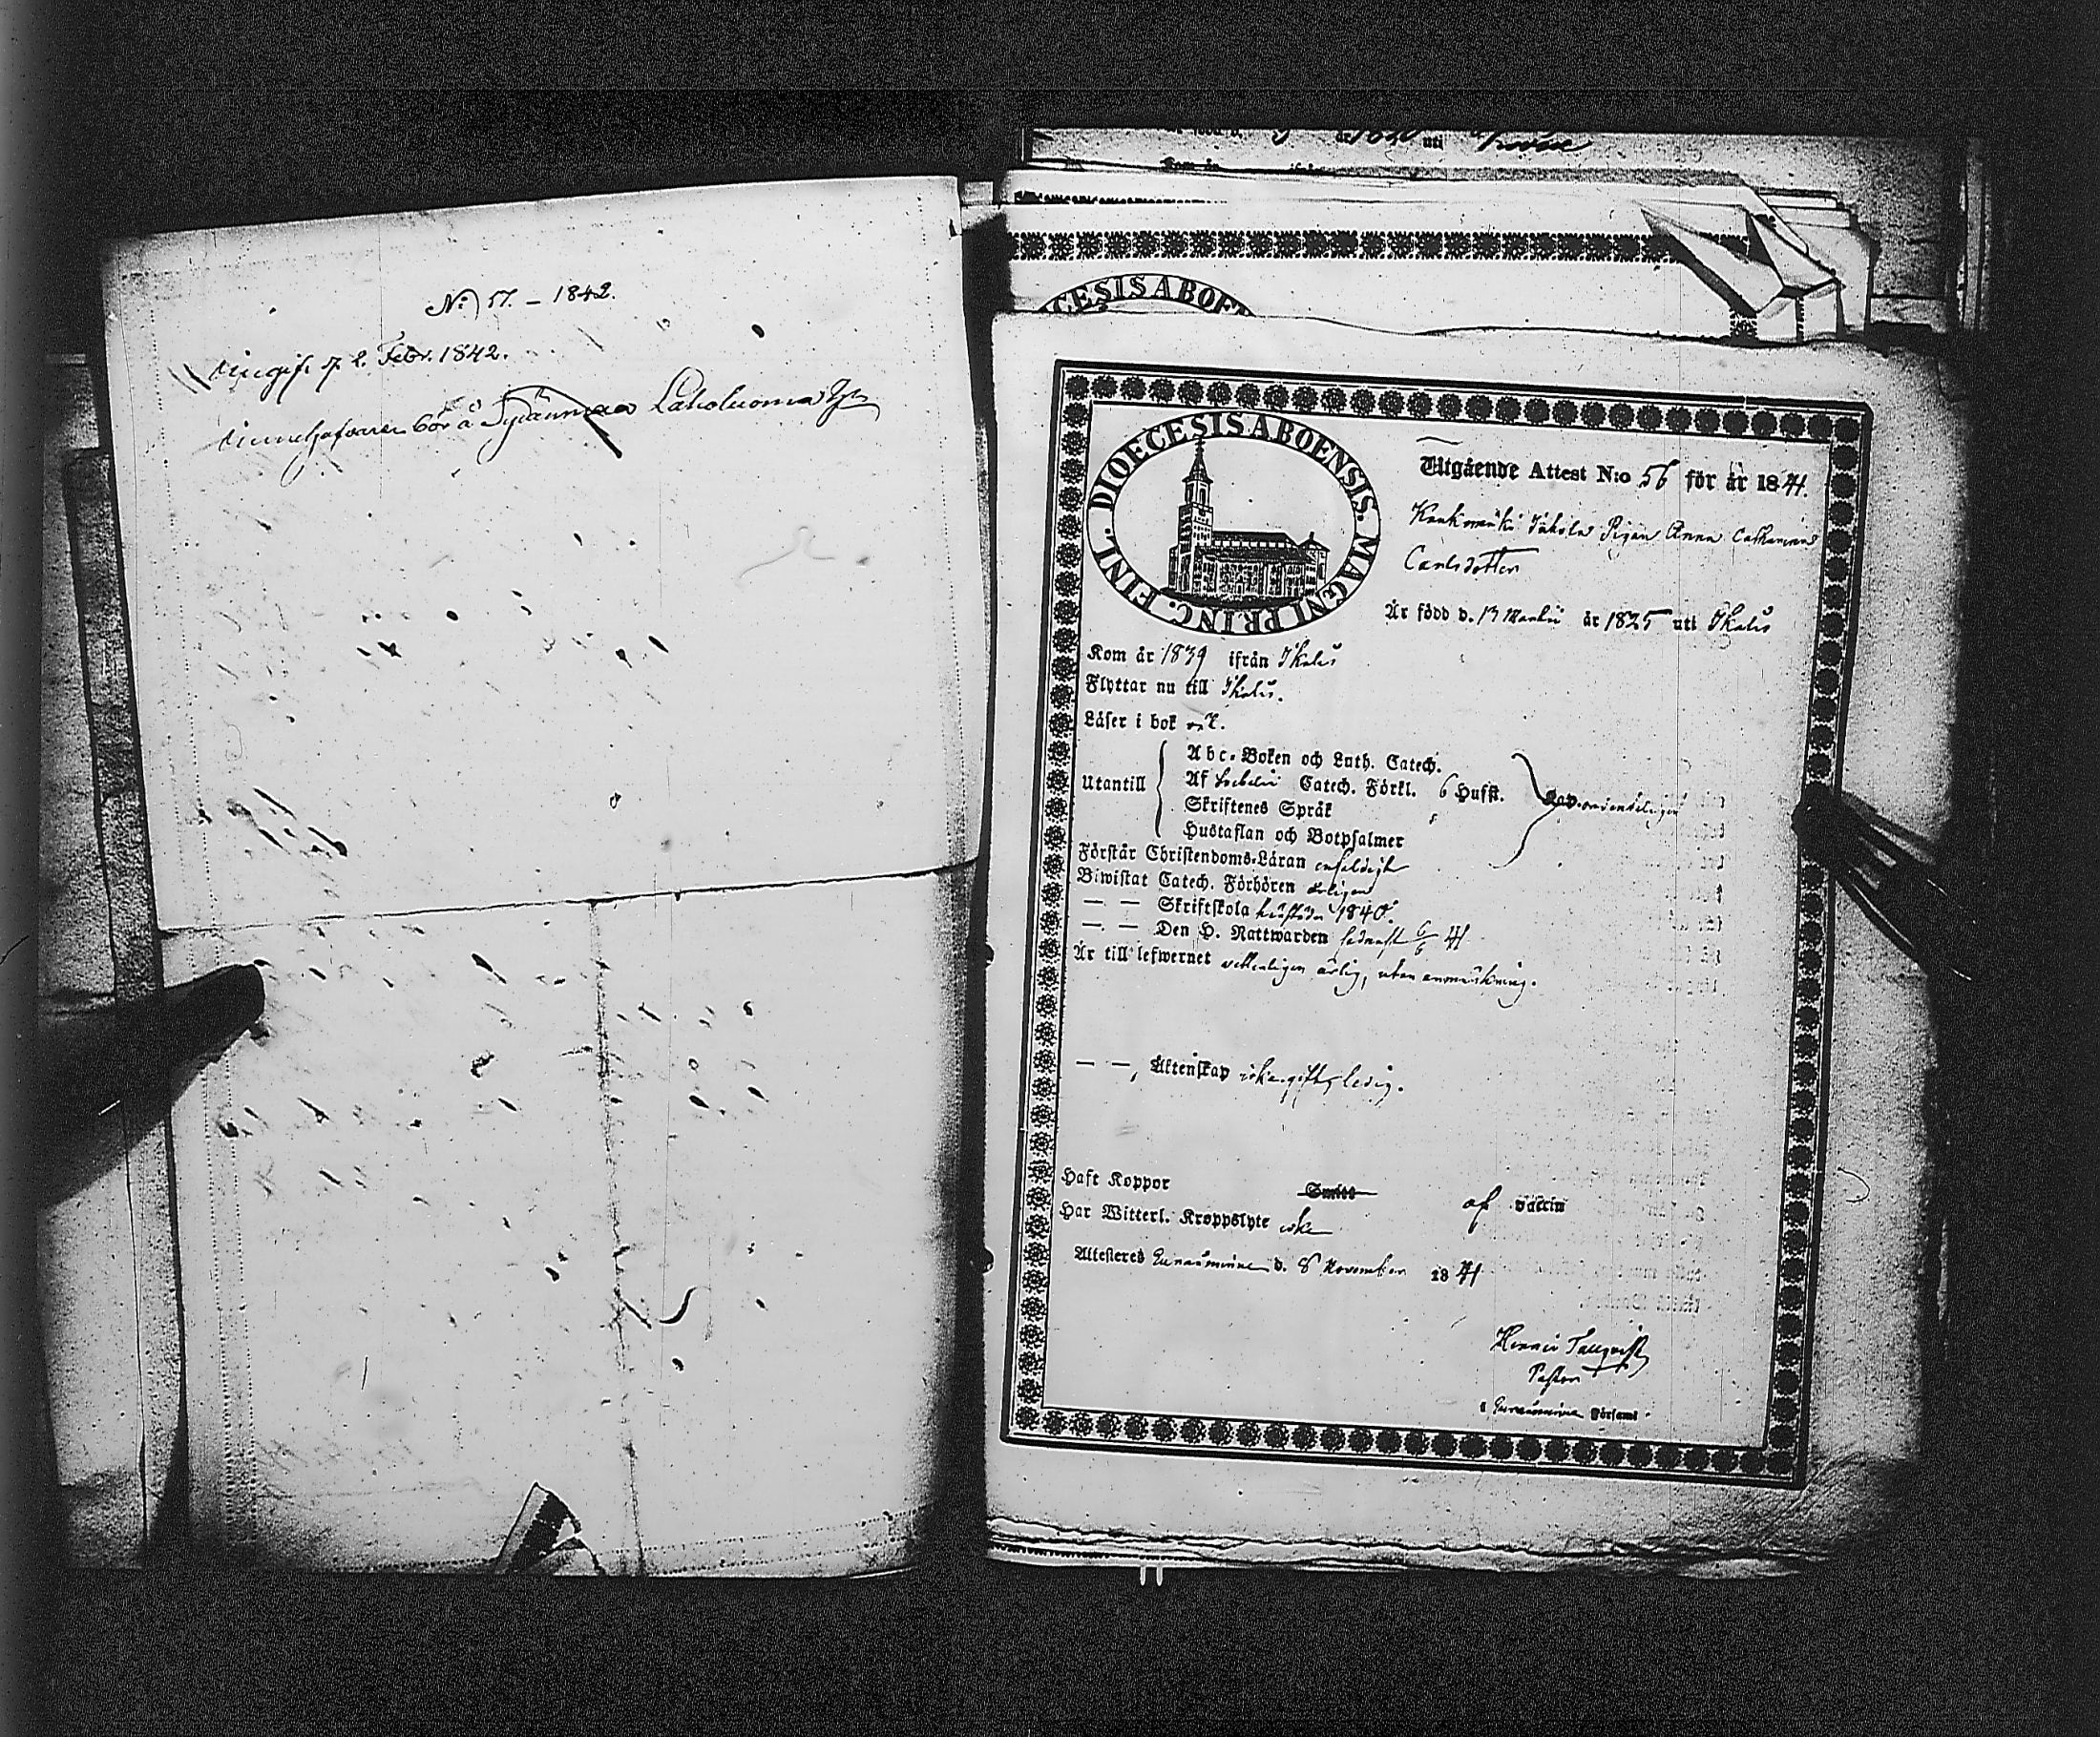 No 57. – 1842.
Ingifv. d. 2. Febr. 1842.
Innehafvaren bor å Lakoluoma
år 1820 uti
Kom år ifrån
DIOECESIS ABOENSIS. MAGNI PRINC. FINL.
Utgående Attest N:o 56 för år 1841.
Kankmäki Jakola Pigan Anna Catharina
Carlsdotter
Är född d. 13 Martii år 1825 uti Ikalis
Kom år 1839 ifrån Ikalis
Flyttar nu till Ikalis.
Läser i bok
Utantill
Abc-Boken och Luth. Catech.
Af Svebelii Catech. Förkl. 6 Hufst.
Skriftenes Språk
Hustaflan och Botpsalmer
Förstår Christendoms-Läran enfaldigt
Biwistat Catech. Förhören årligen
— — Skriftskola 1840.
— — Den H. Nattwarden sednast 6/6 41
Är till lefwernet vetterligen ärlig, utan anmärkning.
— —, Äktenskap icke gift, ledig.
Haft Koppor Smitt af vaccin
Har Witterl. Kroppslyte icke
Attesteres d. 8 November 1841
Tallqvist
Pastor
i Församl.